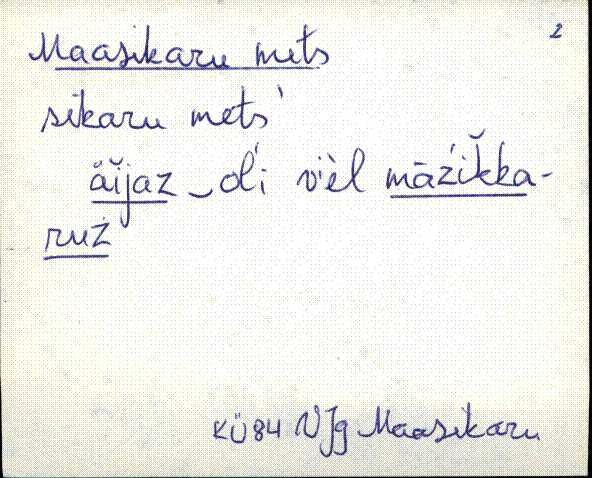 2
Maasikaru mets
sikaru mets'
åĭjaz ‿ol'i vièl māz'iǩka-
ruz
KÜ84 VJg Maasikaru